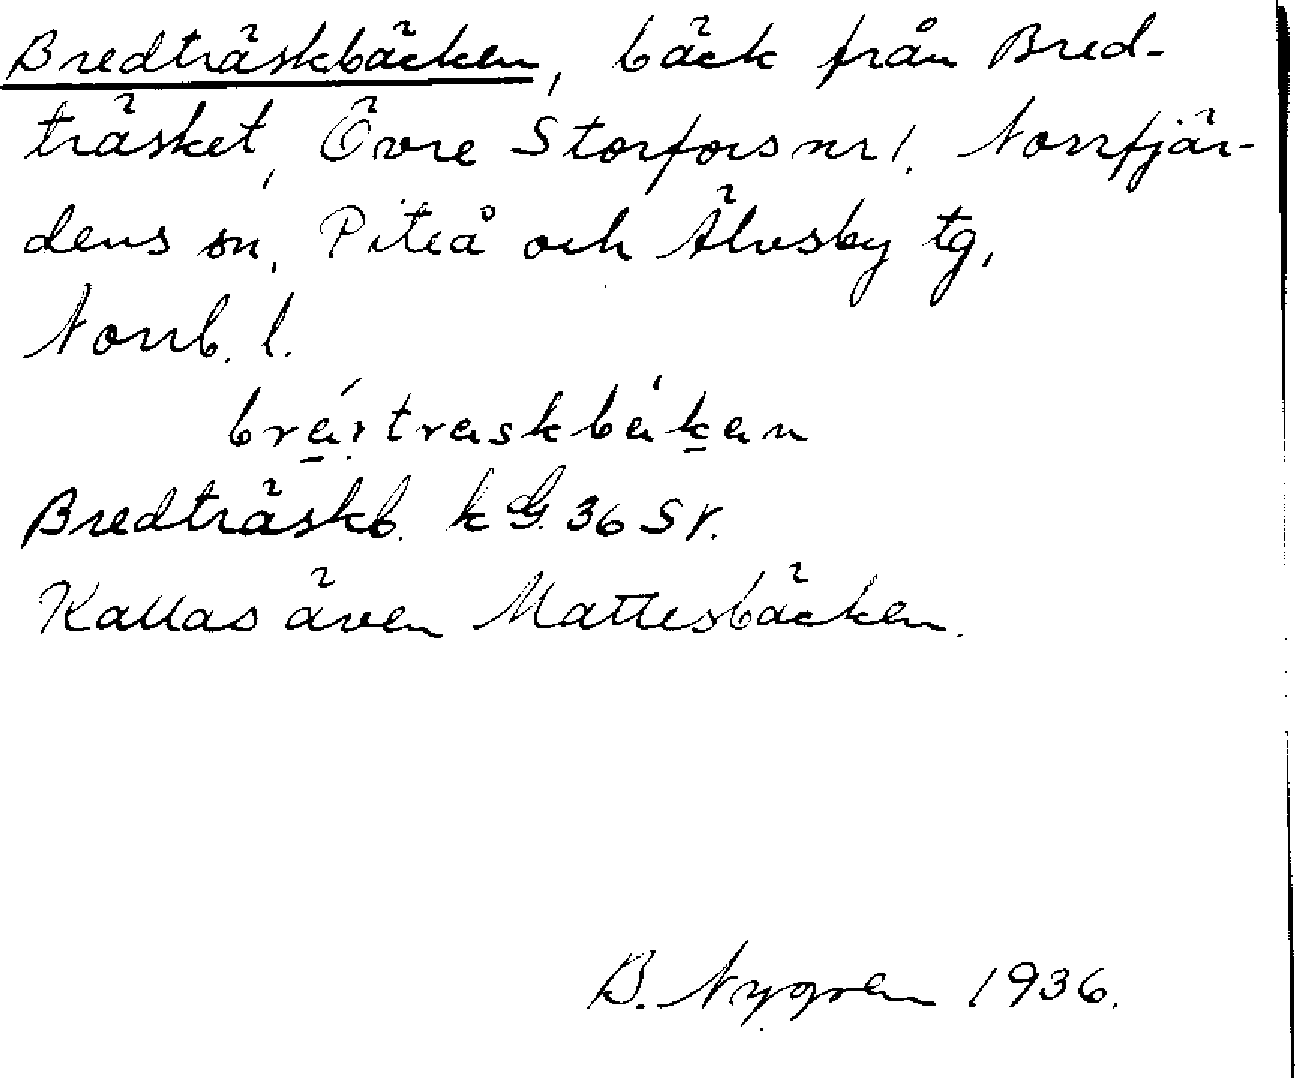 Bredträskbäcken, bäck från Bred-
träsket, Övre Storfors nr 1. Norrfjär-
dens sn, Piteå och Älvsby tg,
Norrb. l.
Bredträskb. k G. 36 SV.
Kallas även Mattesbäcken.
B. Nygren 1936.